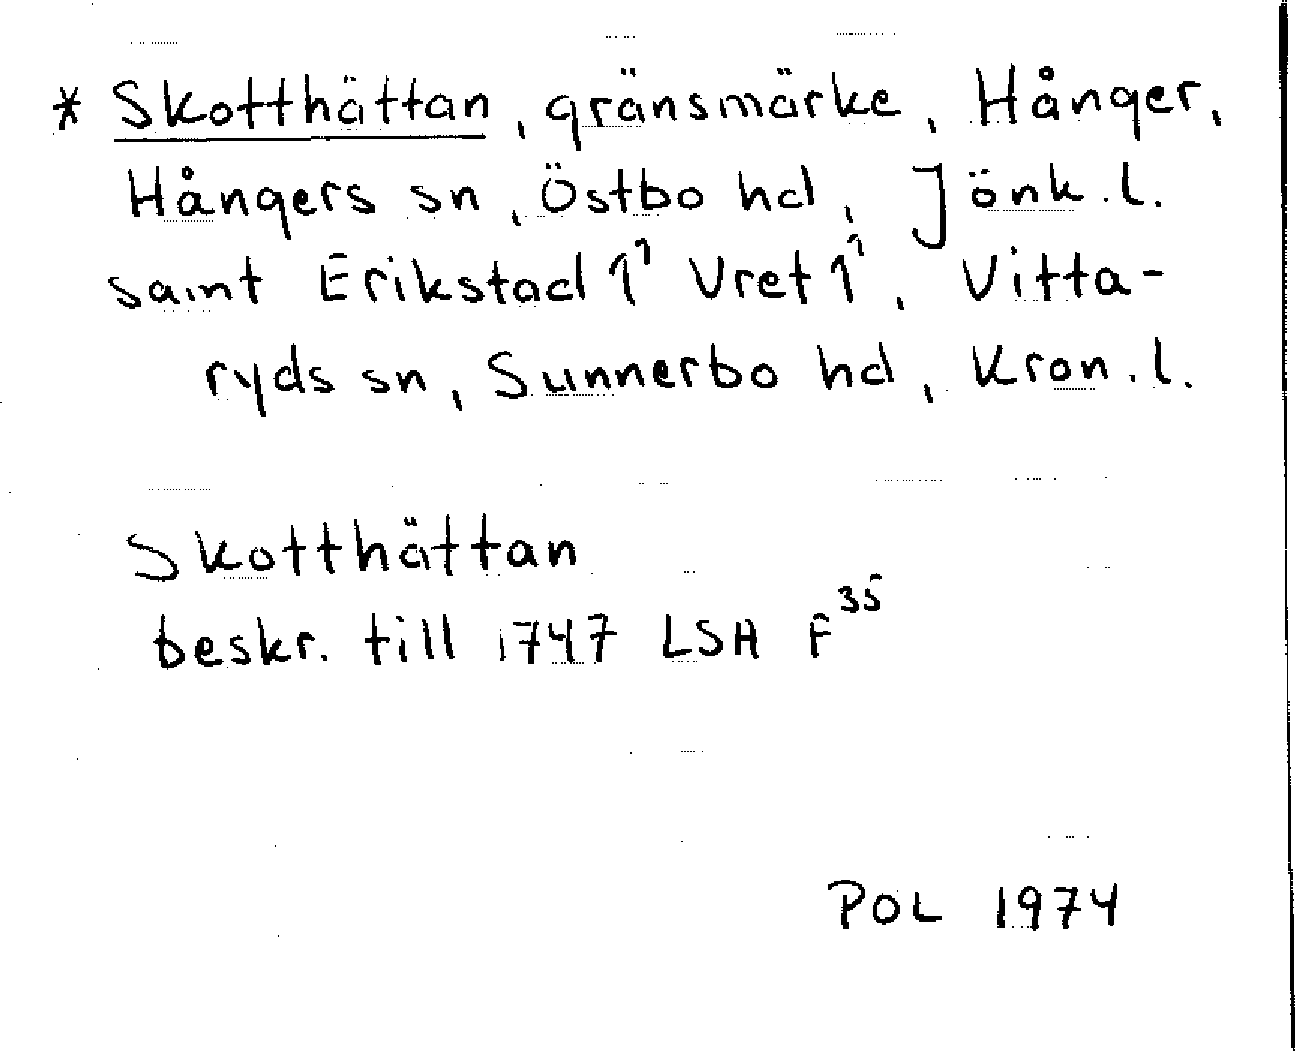 * Skotthättan, gränsmärke, Hånger,
Hångers sn, Östbo hd, Jönk. l.
samt Erikstad 1¹ Vret 1¹, Vitta-
ryds sn, Sunnerbo hd, Kron. l.
Skotthättan
beskr. till 1747 LSA F³⁵
POL 1974